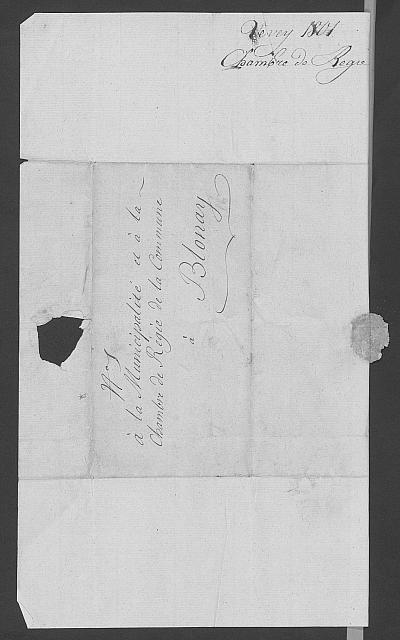 Vevey 1801
Chambre de Regie
à la Municipalité et à la
Chambre de Régie de la Commune
à
Blonay